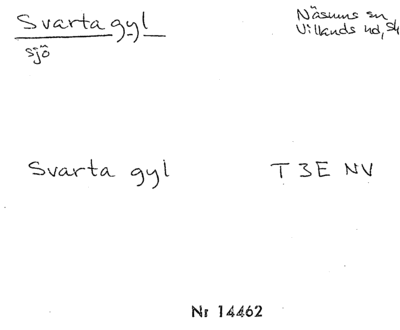 Svarta gyl
Näsums sn
sjö
Villands hd, Sk
Svarta gyl T 3E NV
Nr 14462